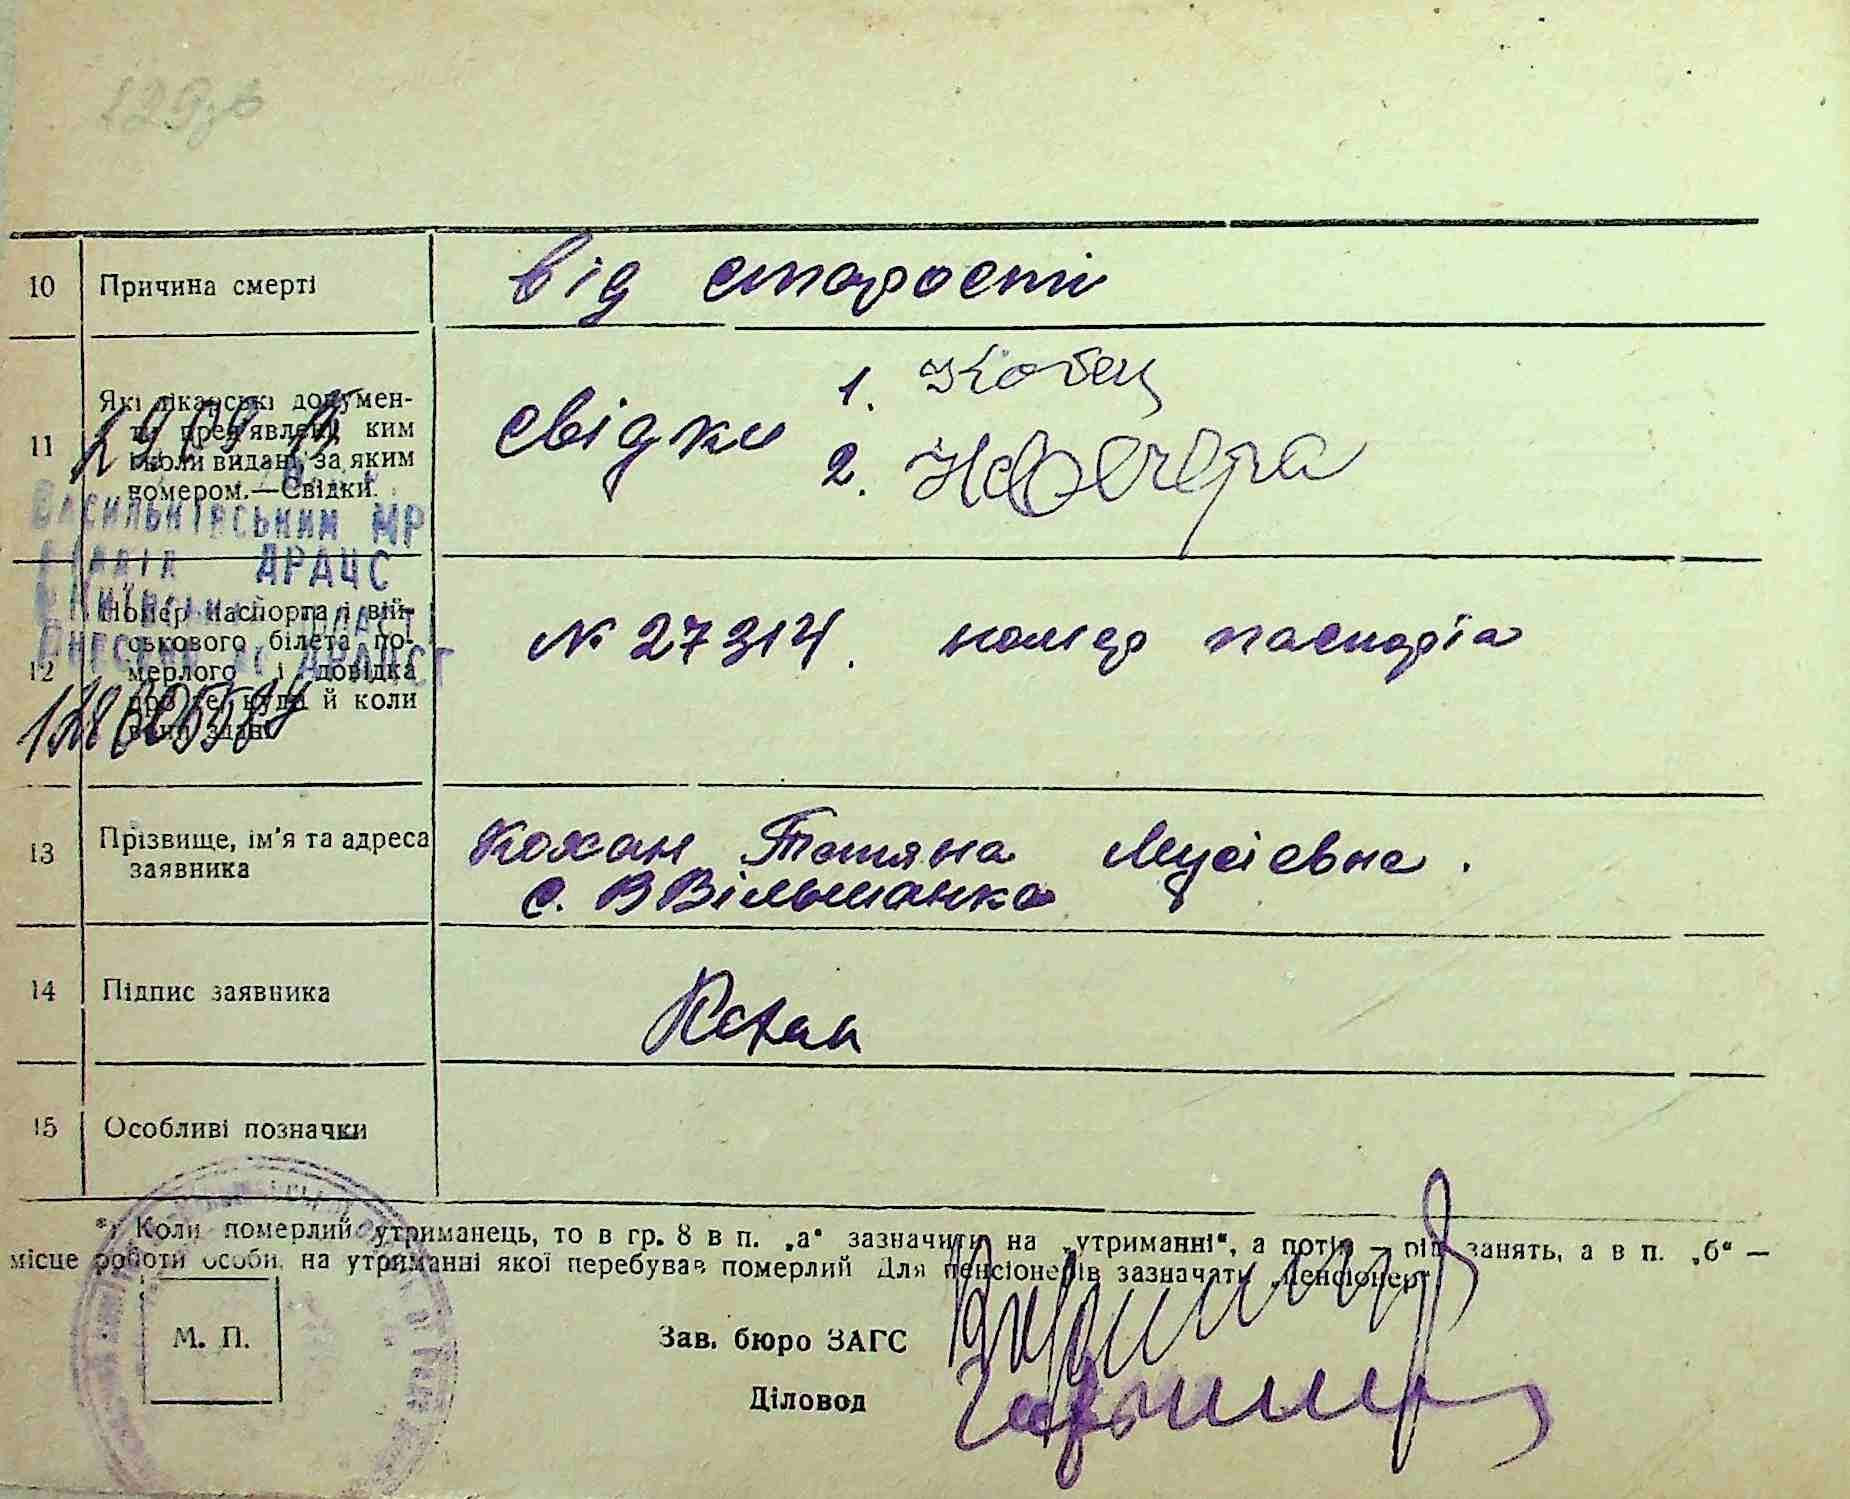 10 Причина смерті від старости
11 Які лікарські докумен-
ти пред'явлені, ким
і коли видані, за яким
номером.—Свідки.
свідки 1. Кобец
2.
Васильківським МР
ДРАЦС
12 Номер паспорта і вій-
ськового білета по-
мерлого і довідка
про те, куди й коли
вони здані
№ 27314. номер паспорта
13 Прізвище, ім'я та адреса
заявника
Кохан Татяна Мусієвна.
с. ВВільшанка
14 Підпис заявника Кохан
15 Особливі позначки
*) Коли померлий утриманець, то в гр. 8 в п. „а“ зазначити на „утриманні“, а потім — рід занять, а в п. „б“ —
місце роботи особи, на утриманні якої перебував померлий Для пенсіонерів зазначать „пенсіонер“
М. П.
Зав. бюро ЗАГС
Діловод